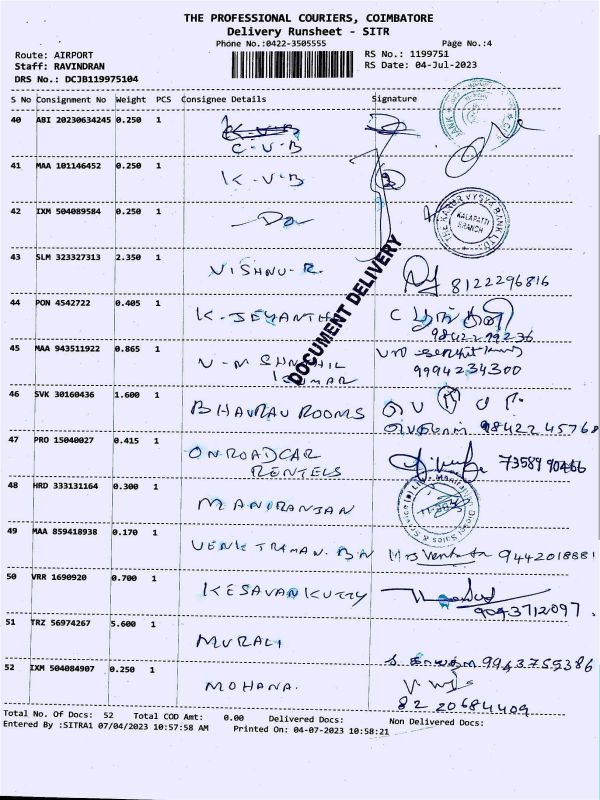 THE PROFESSIONAL COURIERS, COIMBATORE
Delivery Runsheet - SITR
Phone No.:0422-3505555 Page No.:4
Route: AIRPORT RS No.: 1199751
Staff: RAVINDRAN RS Date: 04-Jul-2023
DRS No.: DCJB119975104
S No Consignment No Weight PCS Consignee Details Signature
40 ABI 20230634245 0.250 1
C-V-B
41 MAA 101146452 0.250 1 K-V-B
42 IXM 504089584 0.250 1 Do
THE KARUR VYSYA BANK LTD.
KALAPATTI
BRANCH
43 SLM 323327313 2.350 1 VISHNU-R. 8122296816
DOCUMENT DELIVERY
44 PON 4542722 0.405 1 K-JEYANTHI
45 MAA 943511922 0.865 1 V-M
KUMAR 9994234300
46 SVK 30160436 1.600 1 ROOMS
98422 45768
47 PRO 15040027 0.415 1 ONROADCAR 73589 90466
RENTELS
48 HRD 333131164 0.300 1 MANIRANJAN
49 MAA 859418938 0.170 1 9442018881
50 VRR 1690920 0.700 1 KESAVANKUTTY
9043712097.
51 TRZ 56974267 5.600 1 MURALI
99437 55386
52 IXM 504084907 0.250 1 MOHANA.
82 20684409
Total No. Of Docs: 52 Total COD Amt: 0.00 Delivered Docs: Non Delivered Docs:
Entered By :SITRA1 07/04/2023 10:57:58 AM Printed On: 04-07-2023 10:58:21